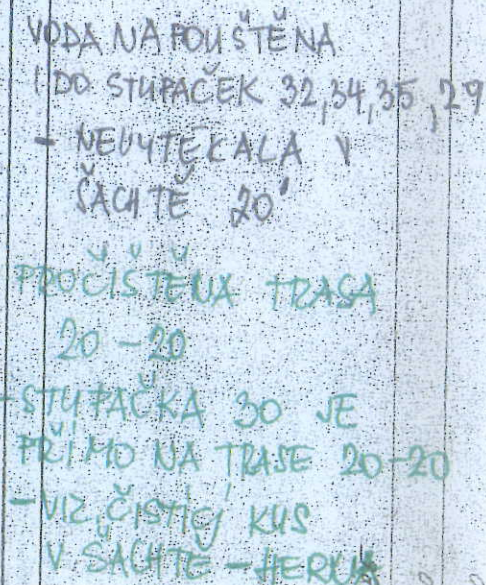 VODA NAPOUŠTĚNA
I DO STUPAČEK 32,34,35,29
- NEVYTÉKALA V
ŠACHTĚ 20'
PROČIŠTĚNA TRASA
20 - 20
- STUPAČKA 30 JE
PŘÍMO NA TRASE 20-20
- VIZ. ČISTÍCÍ KUS
V ŠACHTĚ -